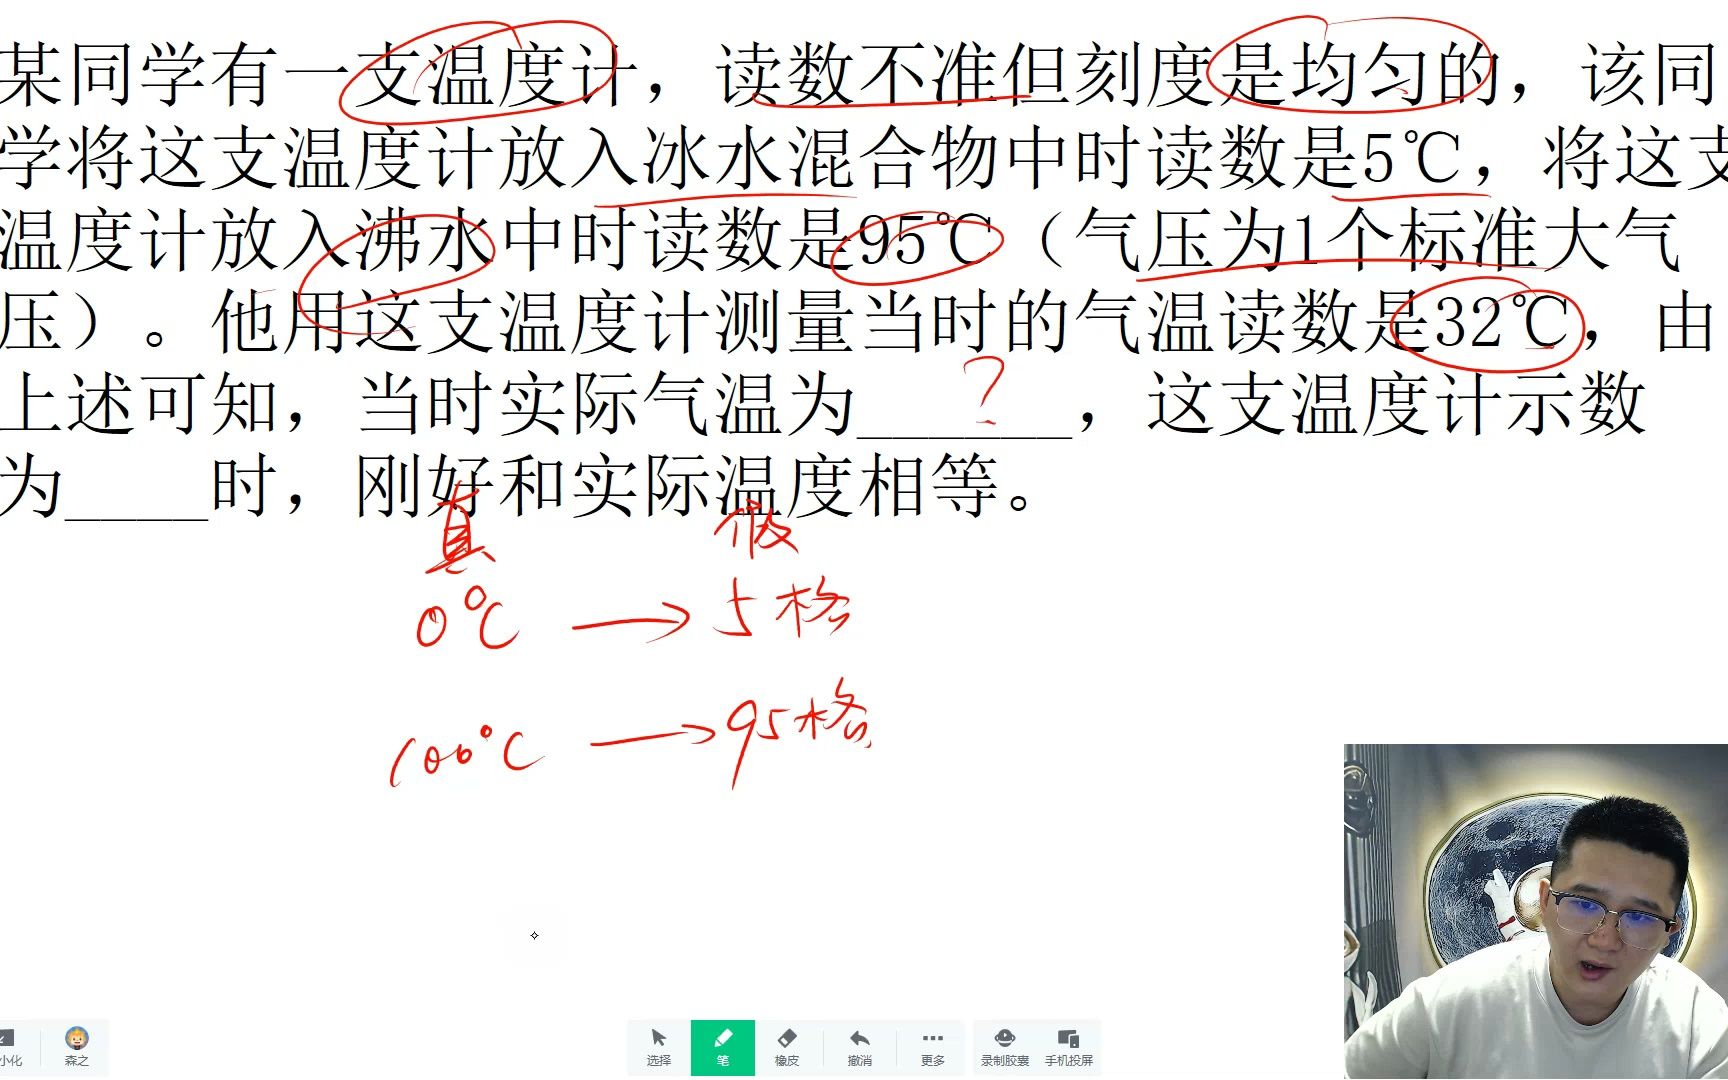 某同学有一支温度计，读数不准但刻度是均匀的，该同
学将这支温度计放入冰水混合物中时读数是5℃，将这支
温度计放入沸水中时读数是95℃（气压为1个标准大气
压）。他用这支温度计测量当时的气温读数是32℃，由
上述可知，当时实际气温为______，这支温度计示数
为____时，刚好和实际温度相等。
?
真 假
0℃ → 5格
100℃ → 95格
小化
森之
选择
笔
橡皮
撤消
更多
录制胶囊
手机投屏